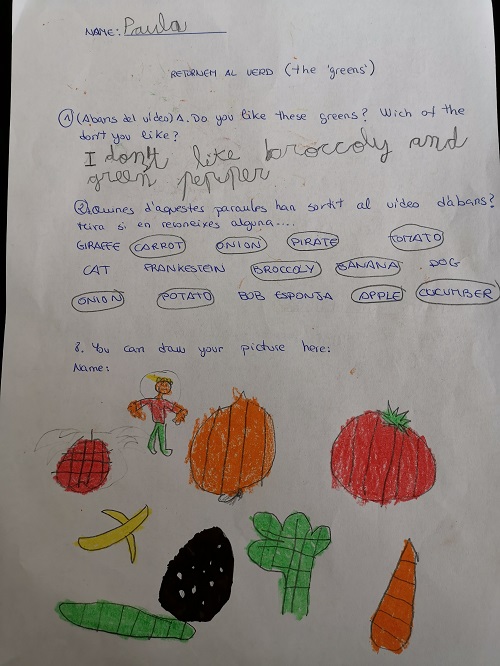 NAME: Paula
RETORNEM AL VERD (the 'greens')
1 (Abans del vídeo) 1. Do you like these greens? Wich of the
don't you like?
I don't like broccoly and
green pepper
2 Quines d'aquestes paraules han sortit al vídeo d'abans?
Mira si en reconeixes alguna....
GIRAFFE CARROT ONION PIRATE TOMATO
CAT FRANKESTEIN BROCCOLY BANANA DOG
ONION POTATO BOB ESPONJA APPLE CUCUMBER
3. You can draw your picture here:
Name: